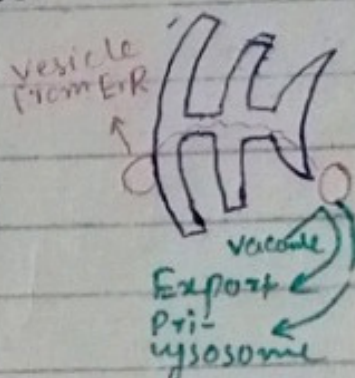 vesicle
from ER
vacuole
Export
Pri-
lysosome